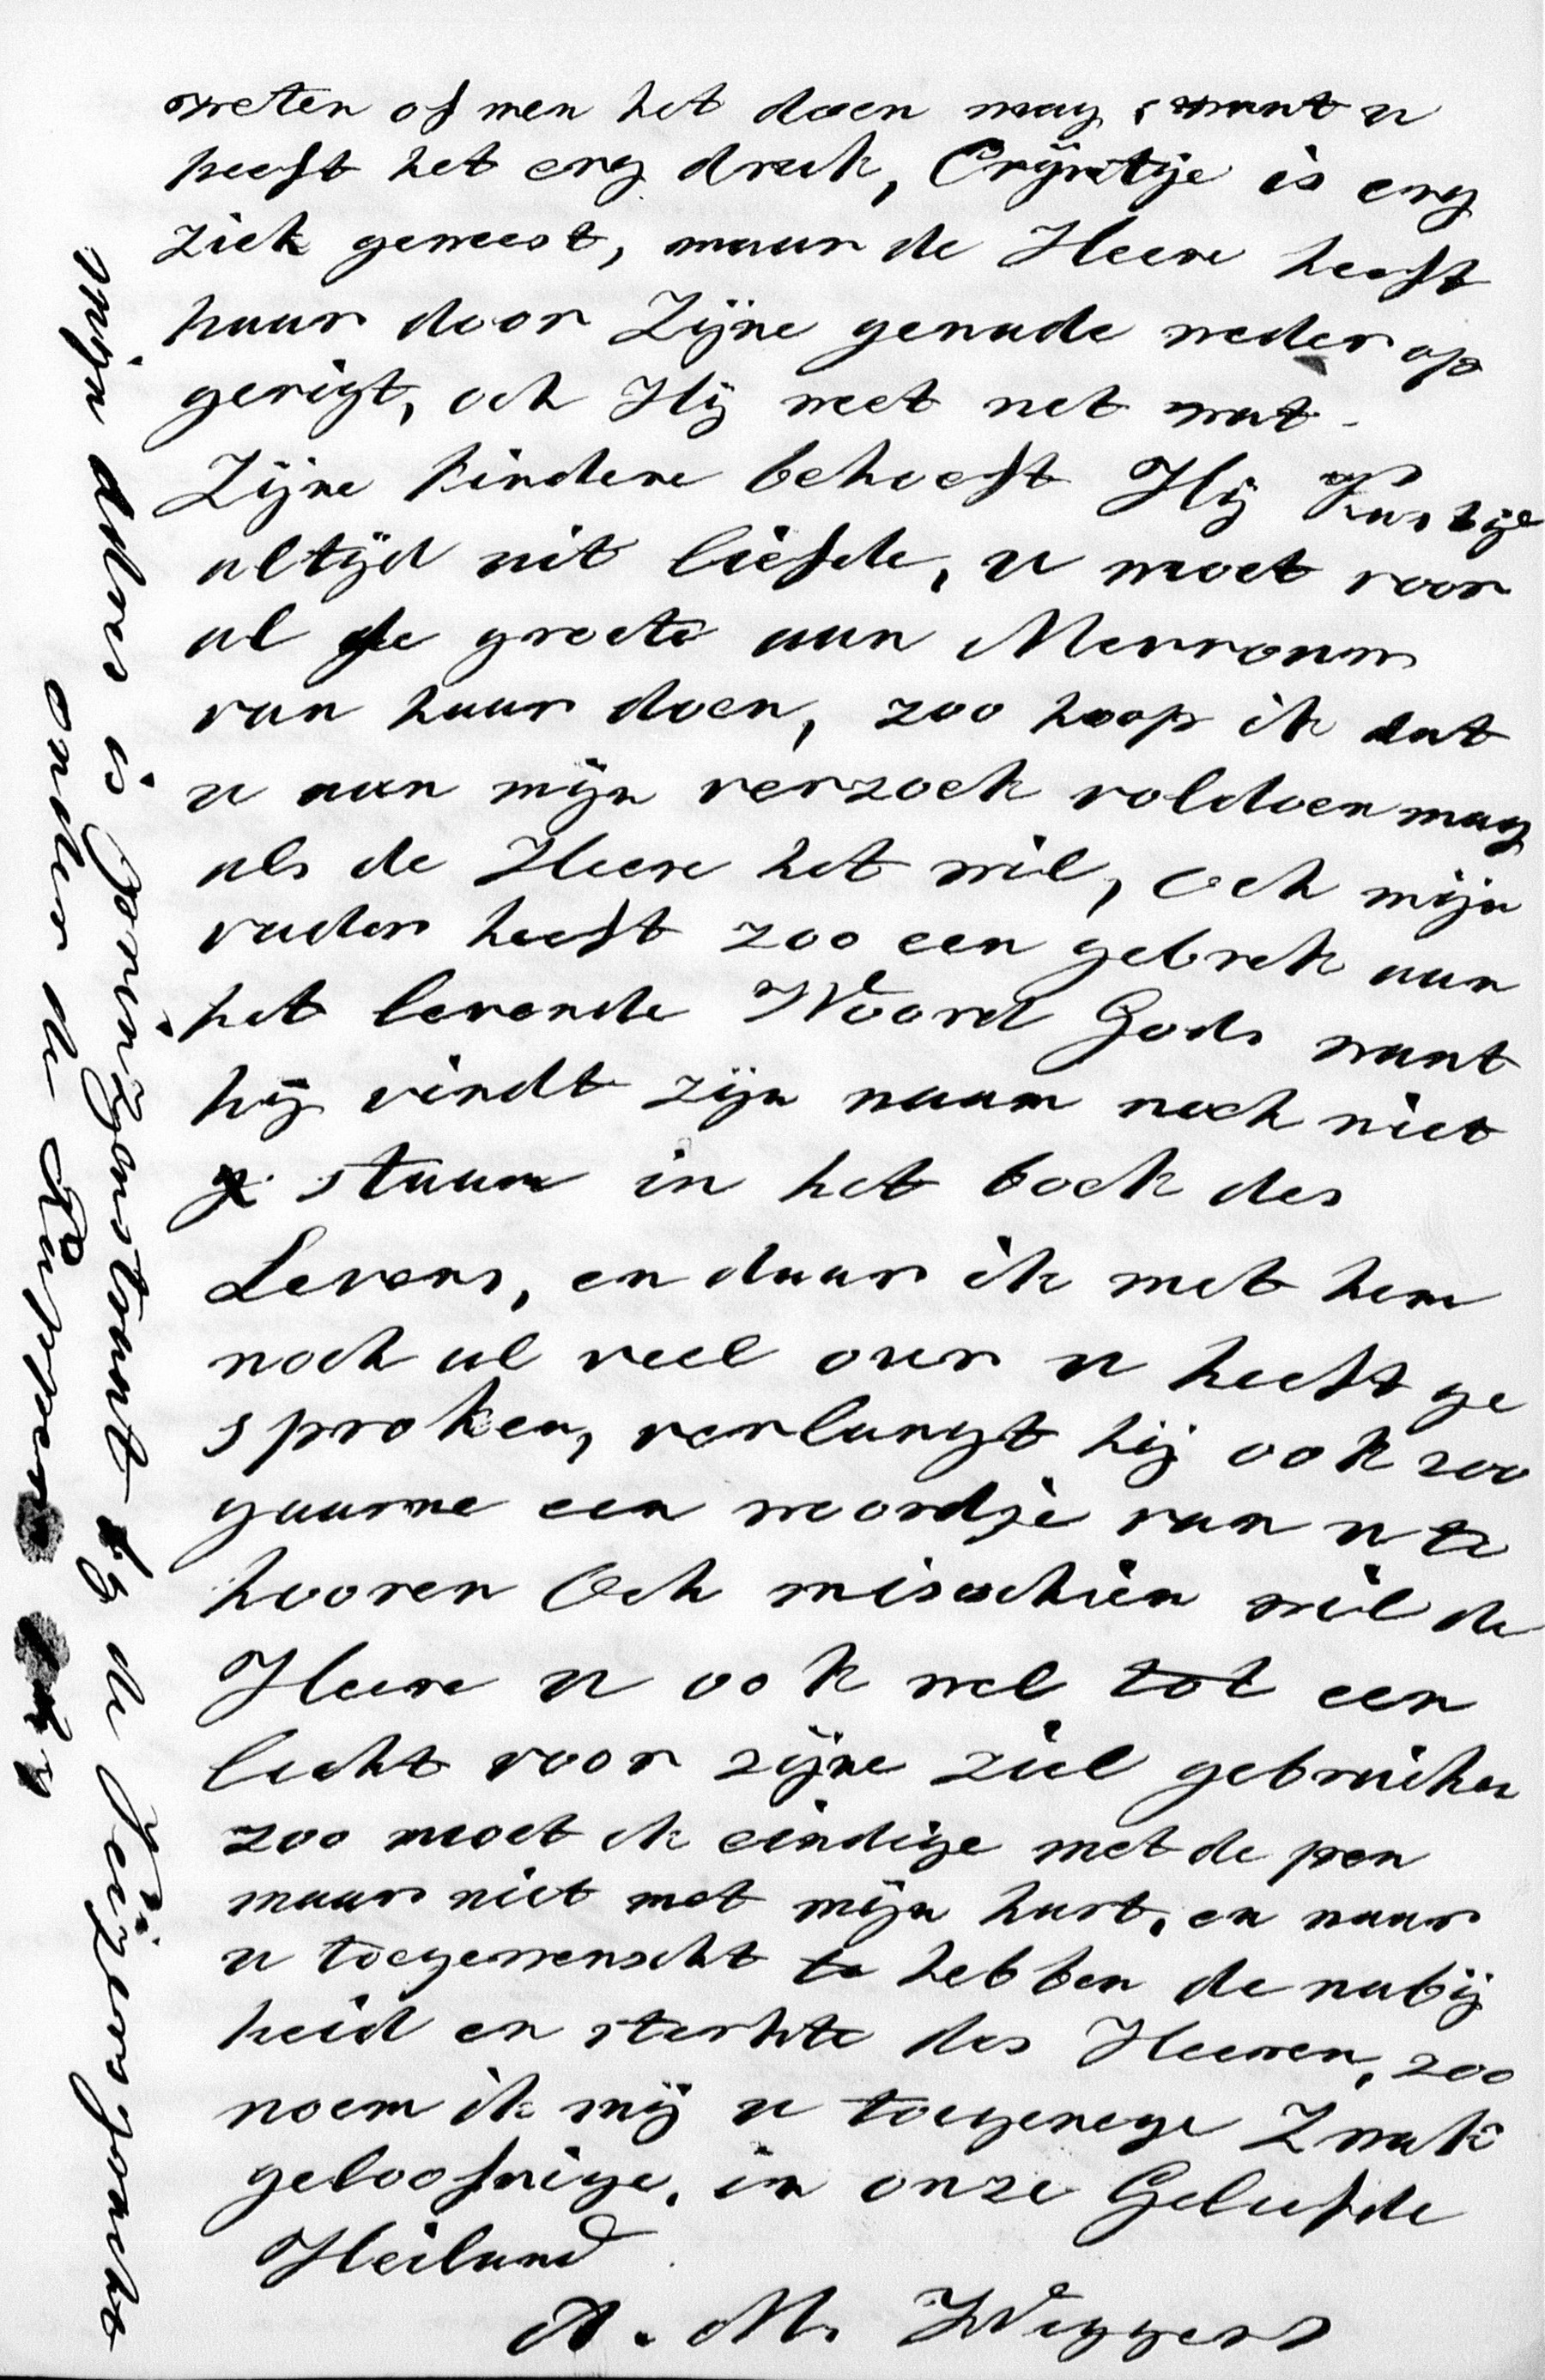 weten of men het doen mag, want u
heeft het erg druk, Crijntje is erg
ziek geweest, maar de Heere heeft
haar door Zijne genade weder op
gerigt, och Hij weet net wat
Zijne kindere behoeft Hij Kastije
altijd uit liefde, u moet voor
al de groete aan Mevrouw
van haar doen, zoo hoop ik dat
u aan mijn verzoek voldoen mag
als de Heere het wil, Och mijn
vader heeft zoo een gebrek aan
het levende Woord Gods want
hij vindt zijn naam noch niet
staan in het boek des
Levens, en daar ik met hem
noch al veel over u heeft ge
sproken, verlangt hij ook zoo
gaarne een woordje van u te
hooren Och misschien wil de
Heere u ook wel tot een
licht voor zijne ziel gebruiken
zoo moet ik eindige met de pen
maar niet met mijn hart, en naar
u toegewenscht te hebben de nabij
heid en sterkte des Heeren, zoo
noem ik mij u toegenege Zwak
geloofnige, in onze Geliefde
Heiland
A. M. Weggers
mijn adres is de
onder de